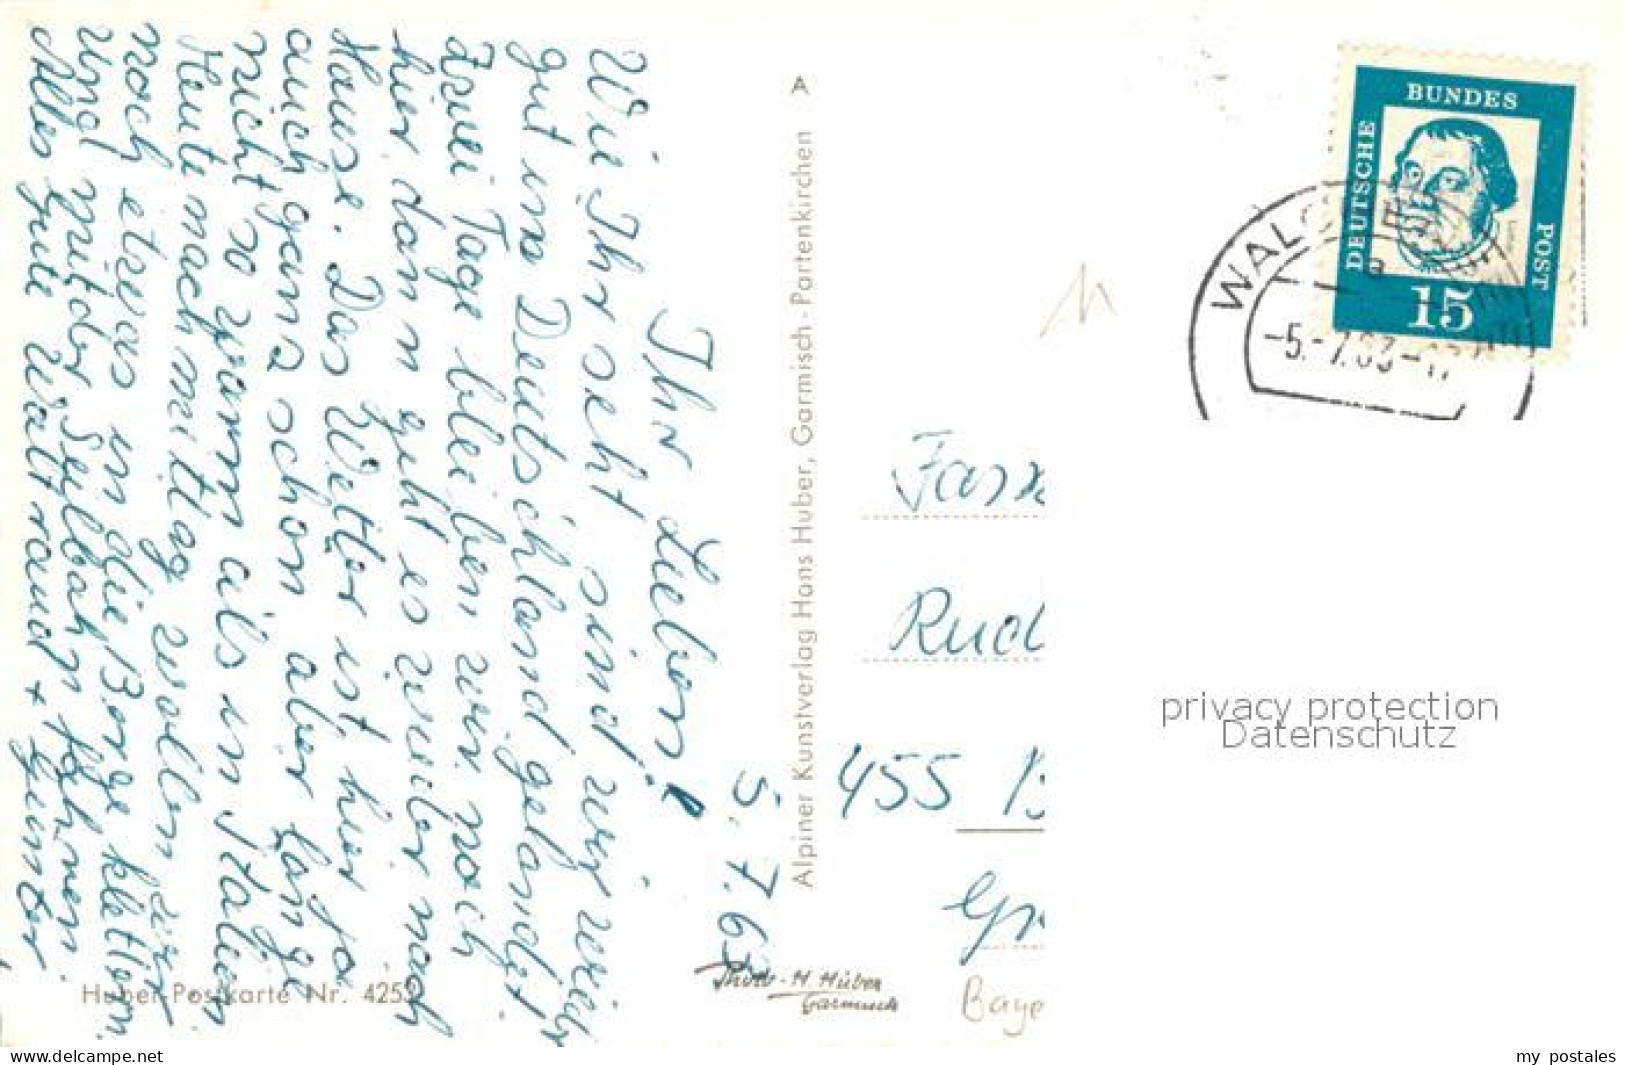 5. 7. 63
Ihr Lieben!
Wie Ihr seht sind wir wieder
gut in Deutschland gelandet.
Zwei Tage bleiben wir noch
hier dann geht es wieder nach
Hause. Das Wetter ist hier ja
auch ganz schön aber lange
nicht so warm als in Italien
Heute nachmittag wollen wir
noch etwas in die Berge klettern
und mit der Seilbahn fahren
Alles gute Waltraud + Günter
Huber-Postkarte Nr. 4252
Alpiner Kunstverlag Hans Huber, Garmisch-Partenkirchen A
Photo-H. Huber
Garmisch
DEUTSCHE
BUNDES
POST
15
-5.-7.63-17
Fam
Rud
455
Baye
privacy protection
Datenschutz
www.delcampe.net
my_postales